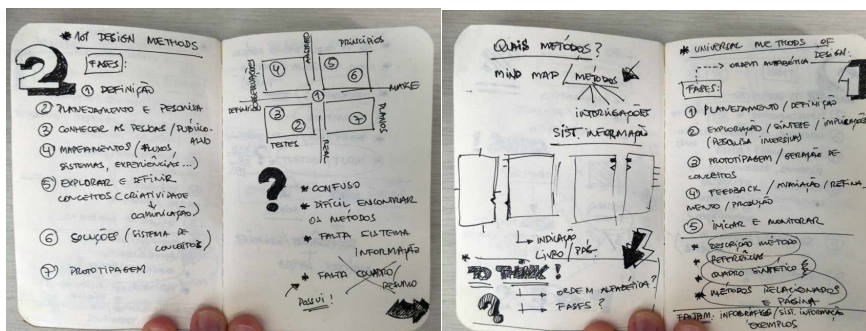 * 101 DESIGN METHODS
2
FASES:
① DEFINIÇÃO
② PLANEJAMENTO E PESQUISA
③ CONHECER AS PESSOAS / PÚBLICO-
ALVO
④ MAPEAMENTOS (FLUXOS
SISTEMAS, EXPERIÊNCIAS...)
⑤ EXPLORAR E DEFINIR
CONCEITOS (CRIATIVIDADE
COMUNICAÇÃO)
⑥ SOLUÇÕES (SISTEMA DE
CONCEITOS)
⑦ PROTOTIPAGEM
PRINCÍPIOS
OBSERVAÇÕES
④
⑤
⑥
①
MAKE
③
②
⑦
PLANOS
TESTES
REAL
?
* CONFUSO
* DIFÍCIL ENCONTRAR
OS METODOS
* FALTA SISTEMA
INFORMAÇÃO
* FALTA QUADRO/
RESUMO
POSSUI!
QUAIS METÓDOS?
MIND MAP / METODOS
INTERLIGAÇÕES
SIST. INFORMAÇÃO
INDICAÇÃO
LIVRO / PÁG.
* TO THINK!
ORDEM ALFABETICA?
? FASES?
* UNIVERSAL METHODS OF
DESIGN:
ORDEM ALFABÉTICA
1
FASES:
① PLANEJAMENTO / DEFINIÇÃO
② EXPLORAÇÃO / SÍNTESE / IMPLICAÇÕES
(PESQUISA IMERSIVA)
③ PROTOTIPAGEM / GERAÇÃO DE
CONCEITOS
④ FEEDBACK / AVALIAÇÃO / REFINA
MENTO / PRODUÇÃO
⑤ INICIAR E MONITORAR
* DESCRIÇÃO MÉTODO
* REFERÊNCIAS
* QUADRO SINTÉTICO
* MÉTODOS RELACIONADOS
E PÁGINA
FALTAM: INFOGRÁFICOS / SIST. INFORMAÇÃO
EXEMPLOS